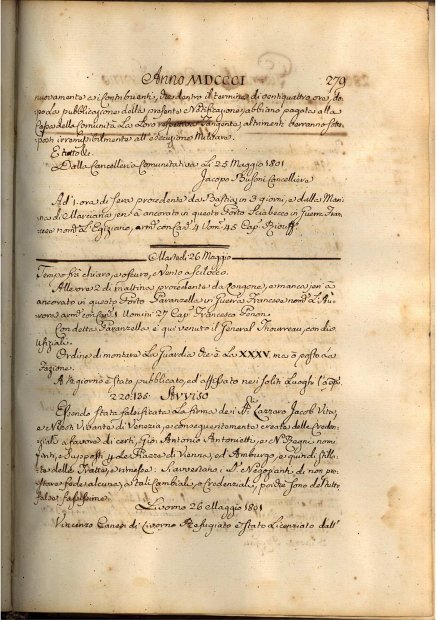 Anno MDCCCI 279
nuovamente ai Contribuenti, che dentro il termine di ventiquattro ore, do-
po la pubblicazione della presente Notificazione abbiano pagata alla
Cassa della Comunità La Loro respettiva Tangente, altrimenti verranno sotto-
posti irremissibilmente all'esecuzione Militare.
E tutto &c.
Dalla Cancelleria Comunitativa Li 25 Maggio 1801
Jacopo Busoni Cancelliere
Ad 1. ora di sera procedente da Bastia in 3 giorni, e dalla Mari-
na di Marciana jeri à ancorato in questo Porto Sciabecco in Guerra Fran-
cese nom.° L'Egiziano, arm.° con Can.i 4 Uom.i 45 Cap.
Martedì 26 Maggio
Tempo frà chiaro, e oscuro, e Vento a Scilocco.
Alle ore 2 di mattina procedente da Longone, e manca jeri à
ancorato in questo Porto Paranzella in Guerra Francese nom.°
arm.° con Can.i 1 Uomini 27 Cap. Francesco
Con detta Paranzella è quì venuto il General Thourreau, con due
Ufiziali.
Ordine di montare La Guardia che è La XXXV. mà à posto la
Fazione.
A 14 giorno è stato pubblicato, ed affissato nei soliti Luoghi
220:135: Avviso
Essendo stata falsificata La firma dei SS.ri Lazzaro Jacob Vita,
e Neott Vivante di Venezia, e conseguentemente create delle Creden-
ziali a favore di certi, Gio: Antonio Antonietti, e N: Begni nomi
finti, e supposti p. Le Piazze di Vienna, ed Amburgo, e quindi
delle Tratte, e rimesse: S'avvertano i SS.ri Negozianti, di non pre-
stare fede alcuna, a tali Cambiali, e Credenziali, poiché sono del tutto
false falsissime.
Livorno 26 Maggio 1801
Vincenzo Canesi di Livorno Refugiato è stato Licenziato dall'